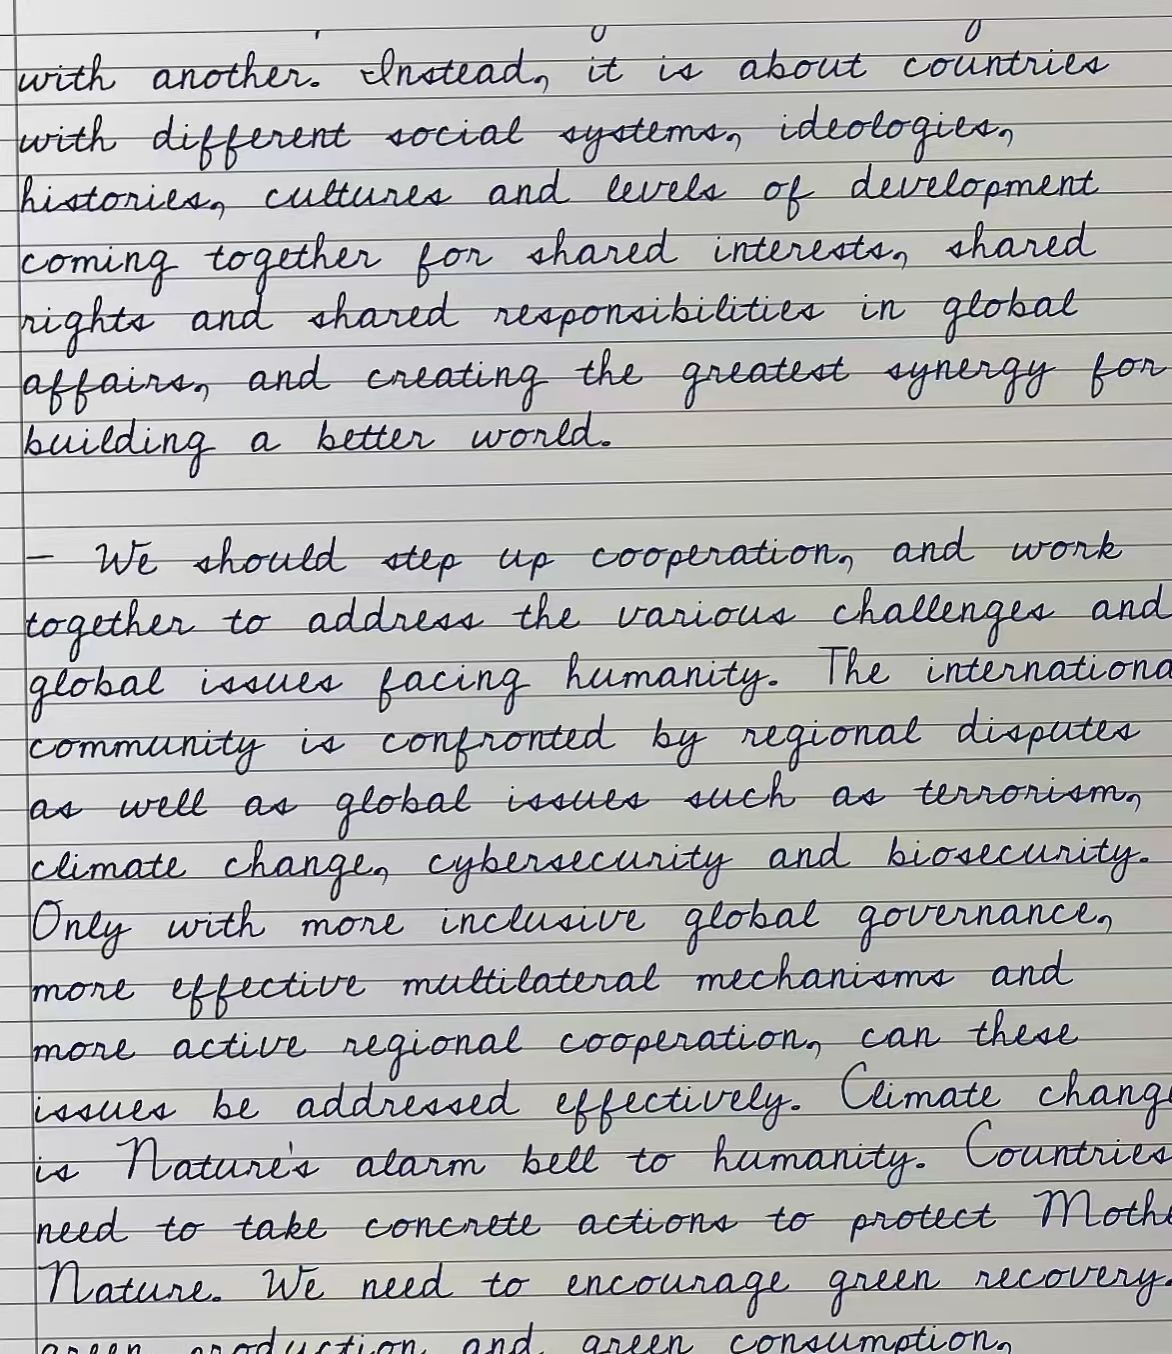 with another. Instead, it is about countries
with different social systems, ideologies,
histories, cultures and levels of development
coming together for shared interests, shared
rights and shared responsibilities in global
affairs, and creating the greatest synergy for
building a better world.
- We should step up cooperation, and work
together to address the various challenges and
global issues facing humanity. The internationa
community is confronted by regional disputes
as well as global issues such as terrorism,
climate change, cybersecurity and biosecurity.
Only with more inclusive global governance,
more effective multilateral mechanisms and
more active regional cooperation, can these
issues be addressed effectively. Climate change
is Nature's alarm bell to humanity. Countries
need to take concrete actions to protect Mothe
Nature. We need to encourage green recovery.
green production and green consumption,